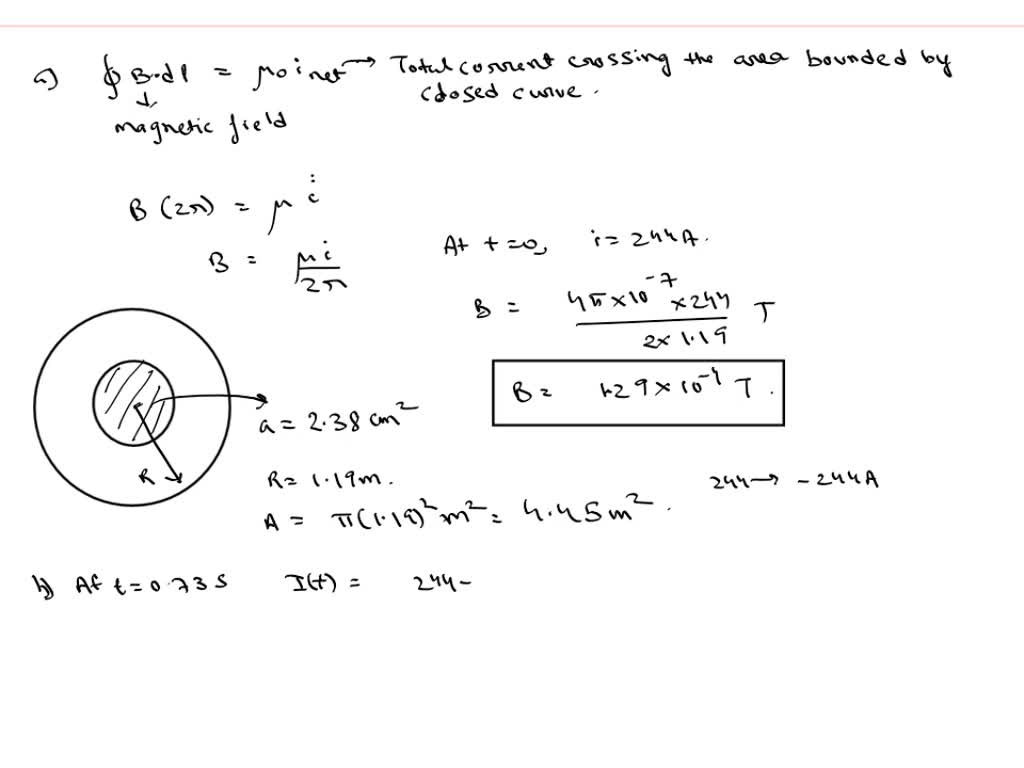 a) ∮ B.dl = μo inet → Total current crossing the area bounded by
closed curve.
↓
magnetic field
B (2π) = μ i
B = μi / 2π
At t=0, i = 244A.
B = 4π×10^-7 ×244 / 2×1.19 T
B = 1.29 × 10^-4 T.
a = 2.38 cm^2
R
R = 1.19m.
244 → -244A
A = π(1.19)^2 m^2 = 4.45 m^2.
b) At t = 0.73 s I(t) = 244 -